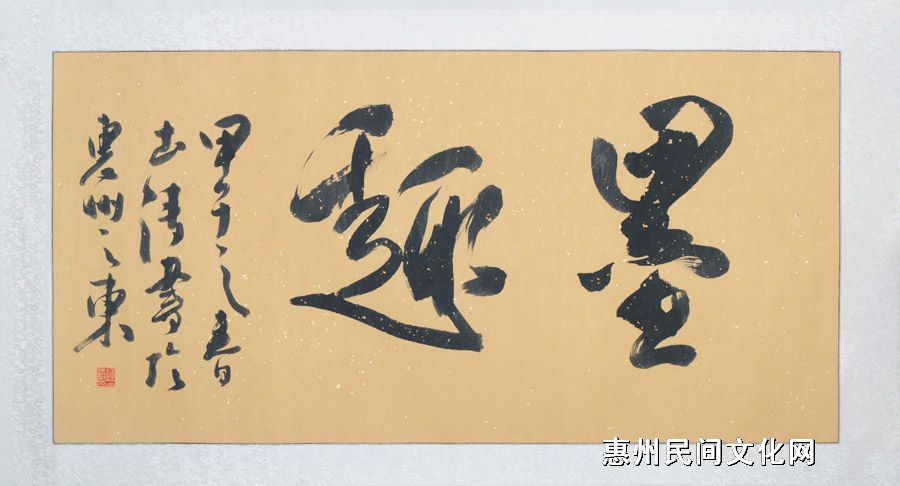 墨趣
甲午之春
志清書於
惠州之東
惠州民间文化网